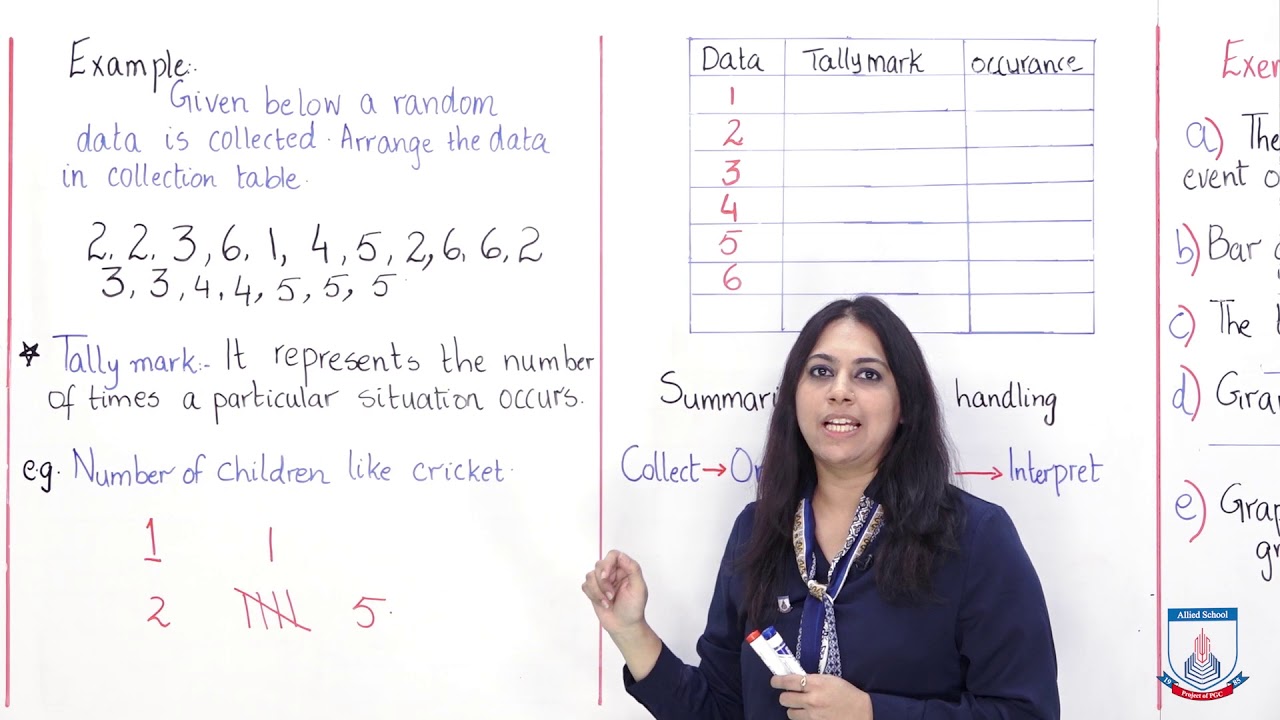 Example:-
Given below a random
data is collected. Arrange the data
in collection table.
2, 2, 3, 6, 1, 4, 5, 2, 6, 6, 2
3, 3, 4, 4, 5, 5, 5
Tally mark:- It represents the number
of times a particular situation occurs.
e.g. Number of children like cricket.
1 |
2 5
Data Tally mark occurance
1
2
3
4
5
6
Summari handling
Collect → Or → Interpret
Exer
a) The
event o
b) Bar
c) The
d) Gra
e) Grap
gr
Allied School
19 85
Project of PGC